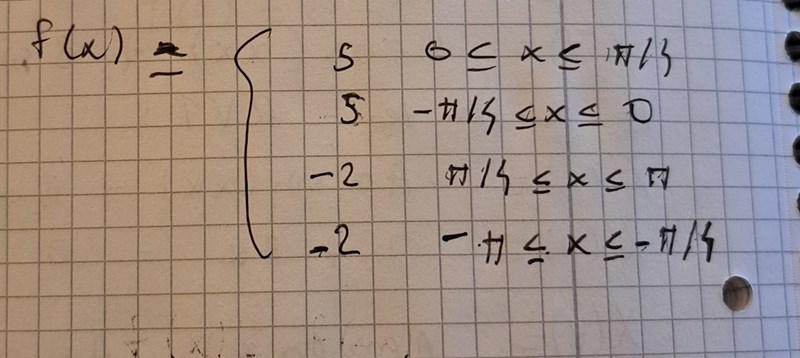 f(x) = { 5 0 ≤ x ≤ π/4
5 -π/4 ≤ x ≤ 0
-2 π/4 ≤ x ≤ π
-2 -π ≤ x ≤ -π/4